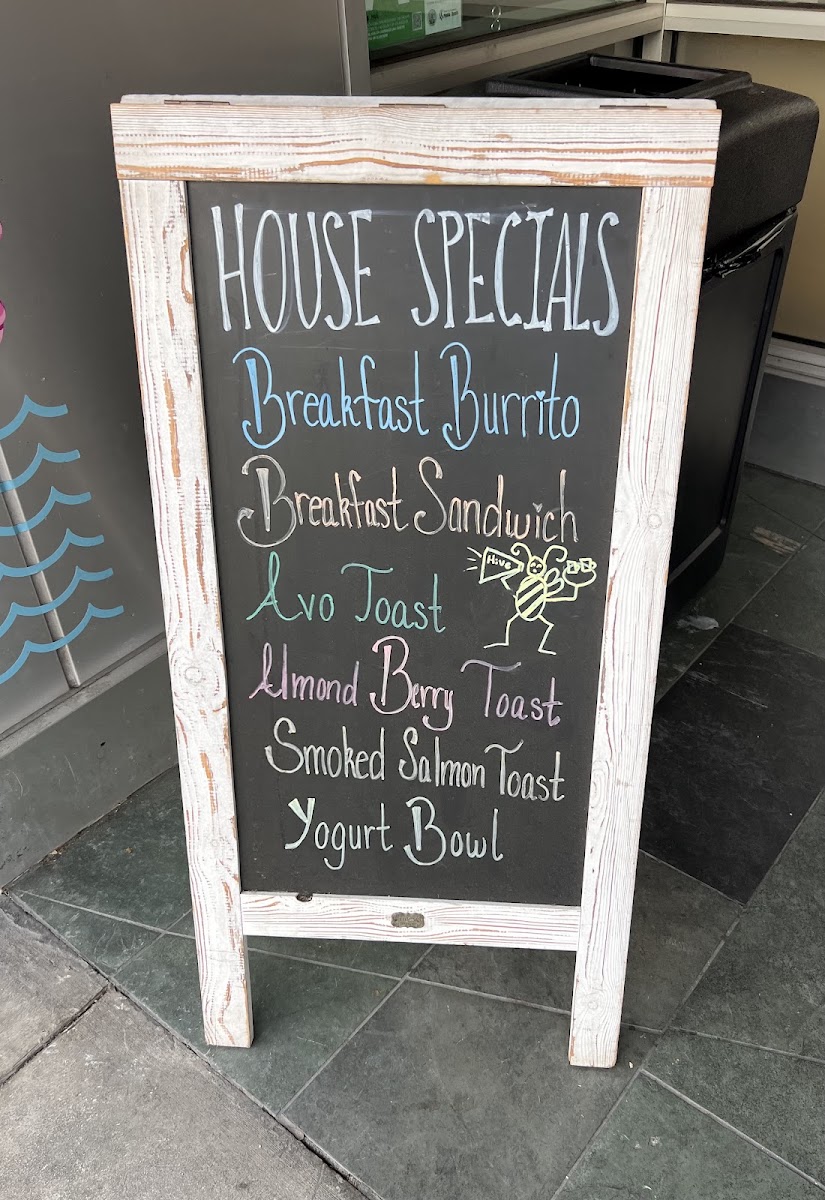 HOUSE SPECIALS
Breakfast Burrito
Breakfast Sandwich
Hive
Avo Toast
Almond Berry Toast
Smoked Salmon Toast
Yogurt Bowl